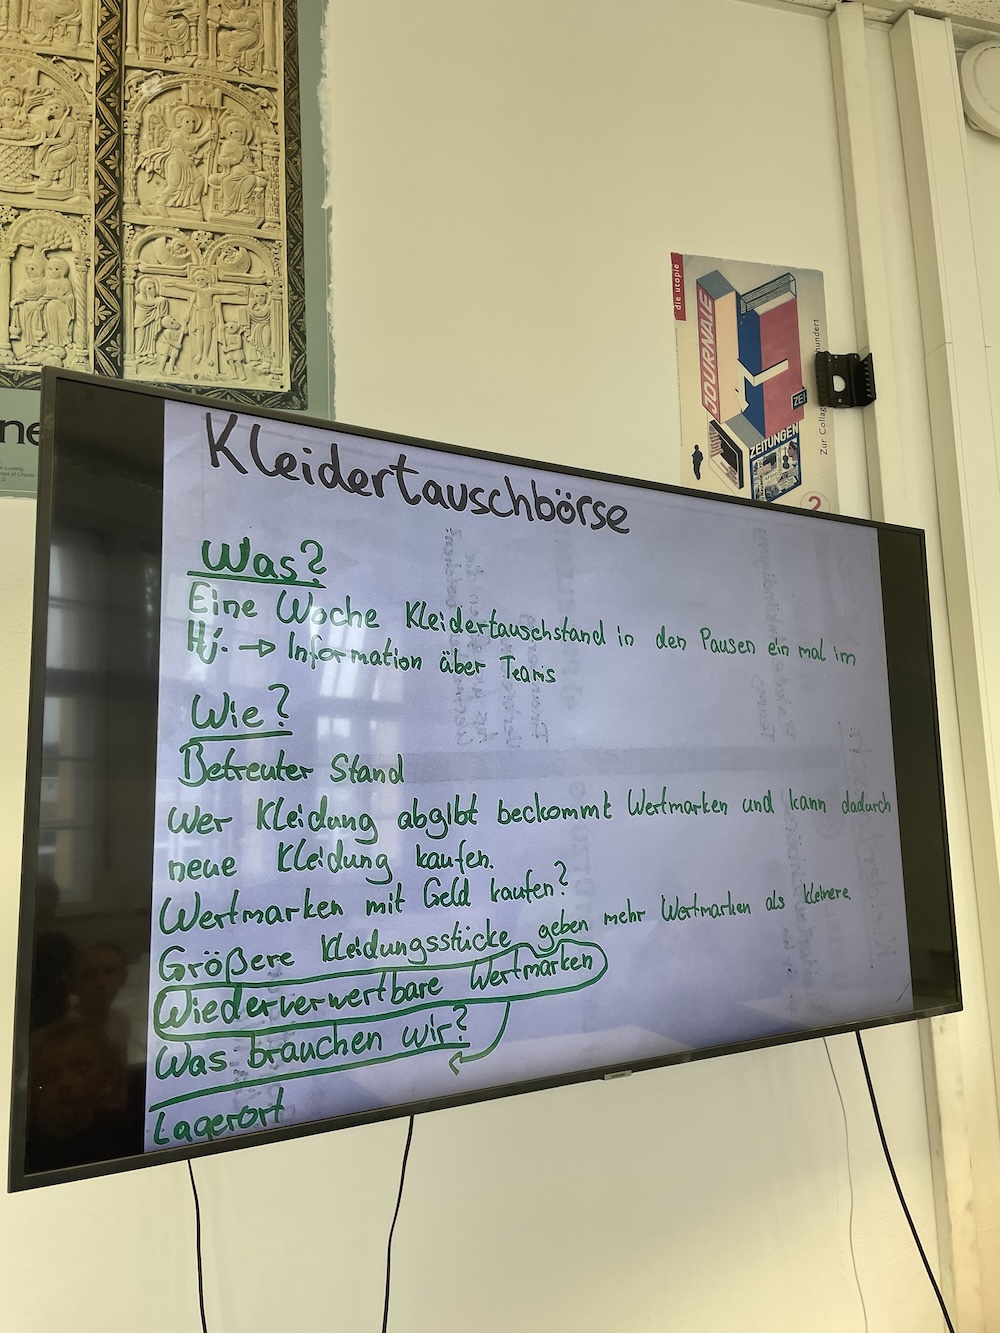 ne
die utopie
JOURNALE
ZEI
ZEITUNGEN
Zur Collag
hundert
2
Kleidertauschbörse
Was?
Eine Woche Kleidertauschstand in den Pausen ein mal im
Hj. → Information über Teams
Wie?
Betreuter Stand
Wer Kleidung abgibt beckommt Wertmarken und kann dadurch
neue Kleidung kaufen.
Wertmarken mit Geld kaufen?
Größere Kleidungsstücke geben mehr Wertmarken als kleinere.
Wiederverwertbare Wertmarken
Was brauchen wir?
Lagerort